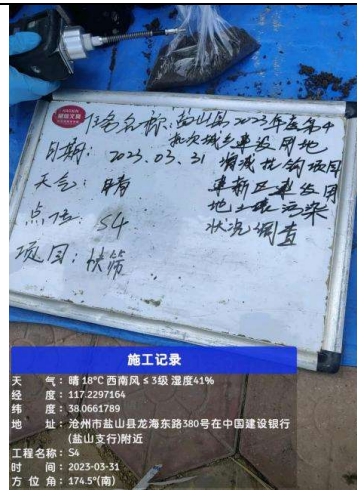 任务名称: 盐山县2023年度第4
批次城乡建设用地
日期: 2023.03.31 增减挂钩项目
天气: 晴 建新区建设用
地土壤污染
点位: S4 状况调查
项目: 快筛
施工记录
天 气: 晴 18℃ 西南风 ≤ 3级 湿度41%
经 度: 117.2297164
纬 度: 38.0661789
地 址: 沧州市盐山县龙海东路380号在中国建设银行
(盐山支行)附近
工程名称: S4
时 间: 2023-03-31
方 位 角: 174.5°(南)